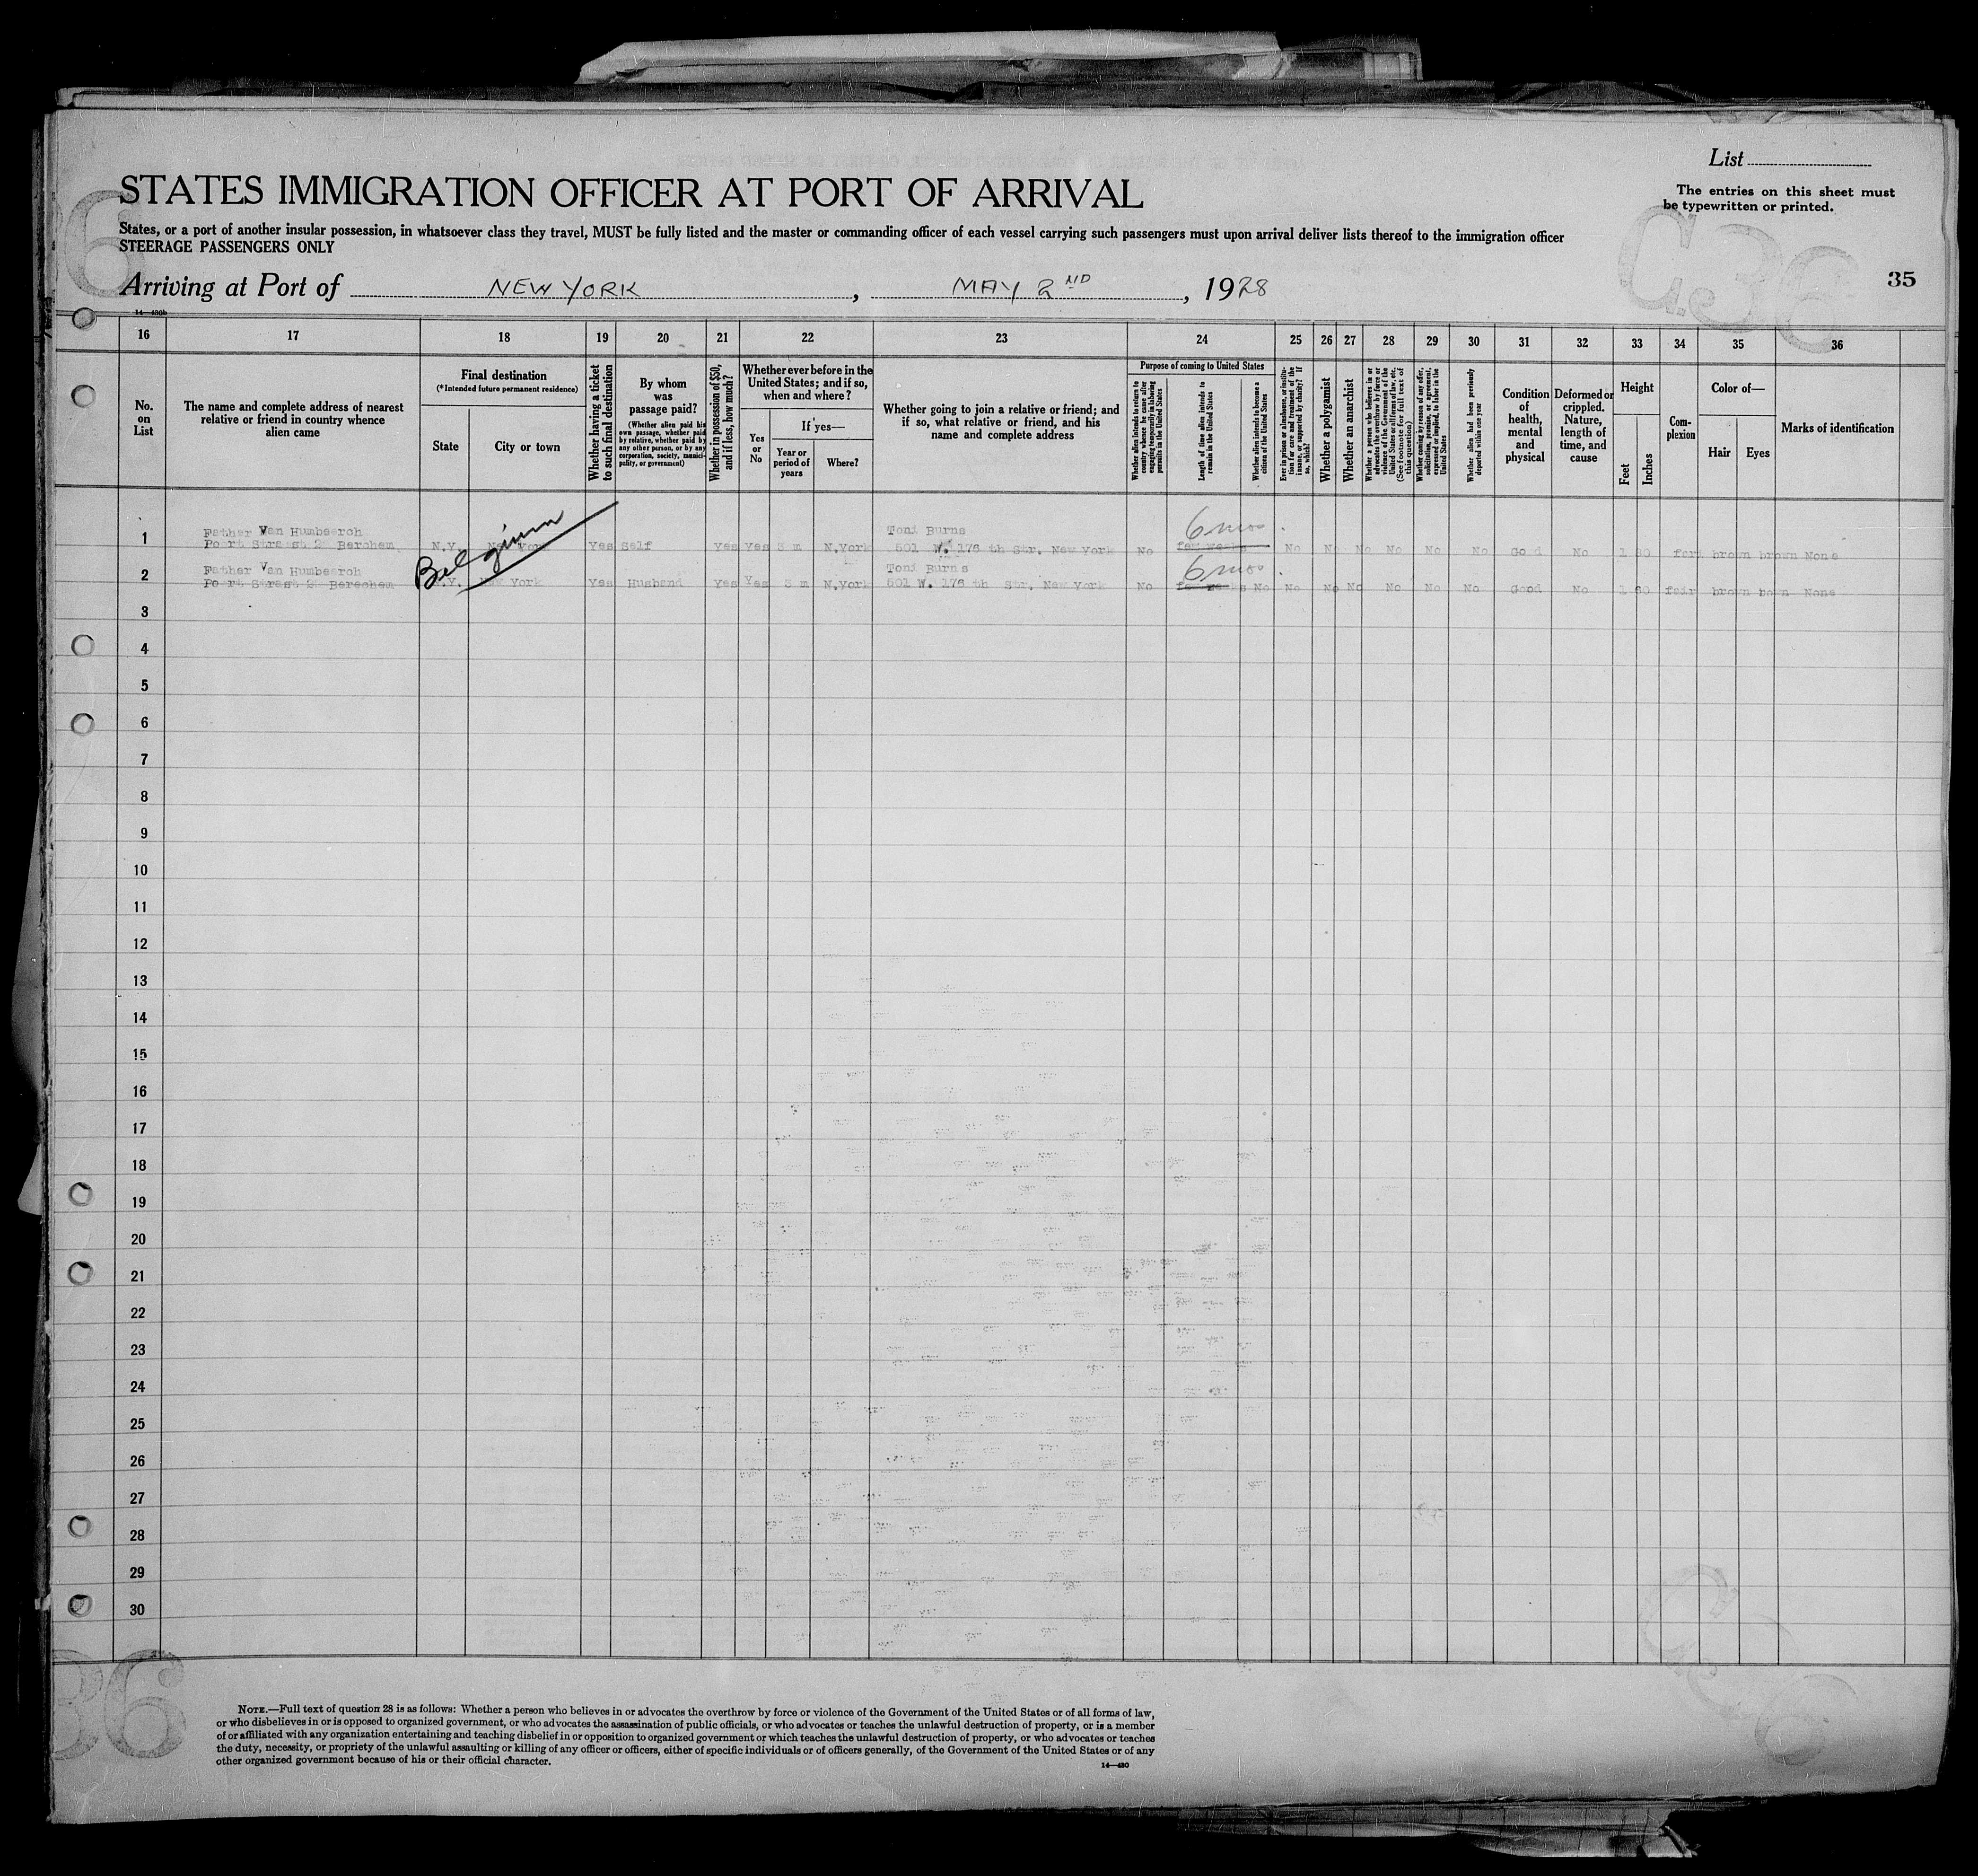 List
The entries on this sheet must
be typewritten or printed.
STATES IMMIGRATION OFFICER AT PORT OF ARRIVAL
States, or a port of another insular possession, in whatsoever class they travel, MUST be fully listed and the master or commanding officer of each vessel carrying such passengers must upon arrival deliver lists thereof to the immigration officer
STEERAGE PASSENGERS ONLY
Arriving at Port of NEW YORK , MAY 2ND , 1928
35
16 17 18 19 20 21 22 23 24 25 26 27 28 29 30 31 32 33 34 35 36
No.
on
List
The name and complete address of nearest
relative or friend in country whence
alien came
Final destination
(*Intended future permanent residence)
State
City or town
Whether having a ticket
to such final destination
By whom
was
passage paid?
(Whether alien paid his
own passage, whether paid
by relative, whether paid by
any other person, or by any
corporation, society, munici-
pality, or government)
Whether in possession of $50,
and if less, how much?
Whether ever before in the
United States; and if so,
when and where?
Yes
or
No
If yes—
Year or
period of
years
Where?
Whether going to join a relative or friend; and
if so, what relative or friend, and his
name and complete address
Purpose of coming to United States
Whether alien intends to return to
country whence he came after
engaging temporarily in laboring
pursuits in the United States
Length of time alien intends to
remain in the United States
Whether alien intends to become a
citizen of the United States
Ever in prison or almshouse, or institu-
tion for care and treatment of the
insane, or supported by charity? If
so, which?
Whether a polygamist
Whether an anarchist
Whether a person who believes in or
advocates the overthrow by force or
violence of the Government of the
United States or all forms of law, etc.
(See footnote for full text of
this question)
Whether coming by reason of any offer,
solicitation, promise, or agreement,
expressed or implied, to labor in the
United States
Whether alien had been previously
deported within one year
Condition
of
health,
mental
and
physical
Deformed or
crippled.
Nature,
length of
time, and
cause
Height
Feet
Inches
Com-
plexion
Color of—
Hair
Eyes
Marks of identification
Belgium
Father Van Humbeeroh Toni Burns 6 mos
1 Berchem N.Y. Yes Self Yes Yes 3 m N.York 501 W. 176 th Str. New York No few weeks No No No No No No Good No 1 80 brown brown None
Father Van Humbeeroh Toni Burns 6 mos
2 Berechem N.Y. York Yes Husband Yes Yes 3 m N.York 501 W. 176 th Str. New York No No No No No No No No Good No 1 60 fair brown None
3
4
5
6
7
8
9
10
11
12
13
14
15
16
17
18
19
20
21
22
23
24
25
26
27
28
29
30
NOTE.—Full text of question 28 is as follows: Whether a person who believes in or advocates the overthrow by force or violence of the Government of the United States or of all forms of law,
or who disbelieves in or is opposed to organized government, or who advocates the assassination of public officials, or who advocates or teaches the unlawful destruction of property, or is a member
of or affiliated with any organization entertaining and teaching disbelief in or opposition to organized government or which teaches the unlawful destruction of property, or who advocates or teaches
the duty, necessity, or propriety of the unlawful assaulting or killing of any officer or officers, either of specific individuals or of officers generally, of the Government of the United States or of any
other organized government because of his or their official character.
14—430